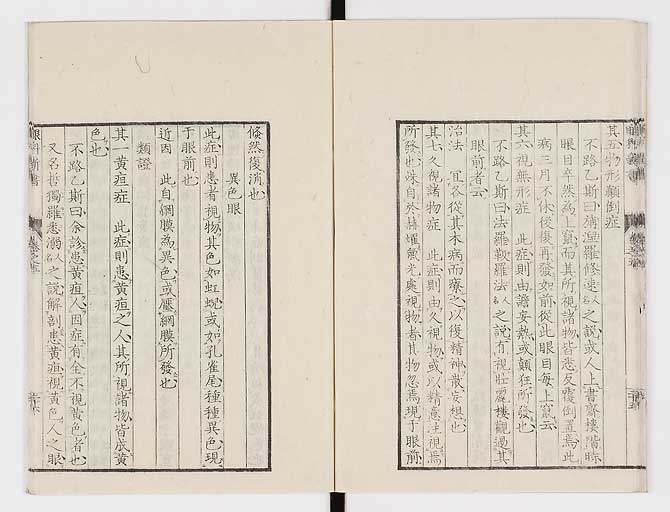 其五物形顚倒症
不路乙斯曰滿涅羅修速人名之說或人上書齋樓階時
眼目卒然爲上竄而其所視諸物皆悉反覆倒置焉此
病三月不休後復再發如前從此眼目每上竄云
其六視無形症 此症則由譫妄熱或顚狂所發也
不路乙斯曰法羅敕羅法人名之說有視壯麗樓觀過其
眼前者云
治法 宜各從其本病而療之以復精神散妄想也
其七久視諸物症 此症則由久視物或以精意注視焉
所發也殊自於赫燿氣光輿視物者其物忽焉現于眼前
倏然復消也
異色眼
此症則患者視物其色如虹蜺或如孔雀尾種種異色現
于眼前也
近因 此自網膜爲異色或壓網膜所發也
類證
其一黃疸症 此症則患黃疸之人其所視諸物皆成黃
色也
不路乙斯曰余診患黃疸人因症有全不視黃色者也
又名哲獨羅悉溺人名之說解剖患黃疸視黃色人之眼